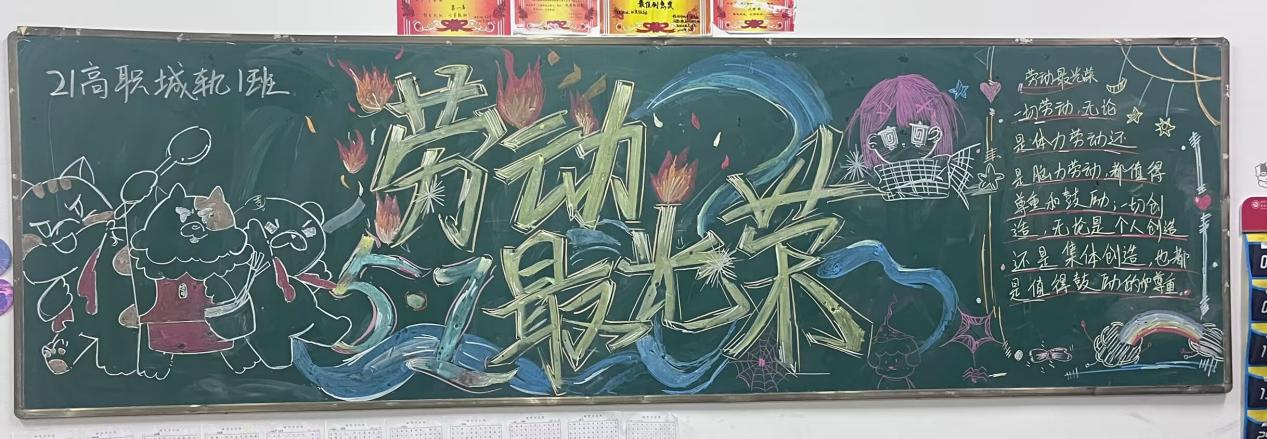 21高职城轨1班
劳动
最光荣
5·1
劳动最光荣
一切劳动,无论
是体力劳动还
是脑力劳动,都值得
尊重和鼓励;一切创
造,无论是个人创造
还是集体创造,也都
是值得鼓励的和尊重。